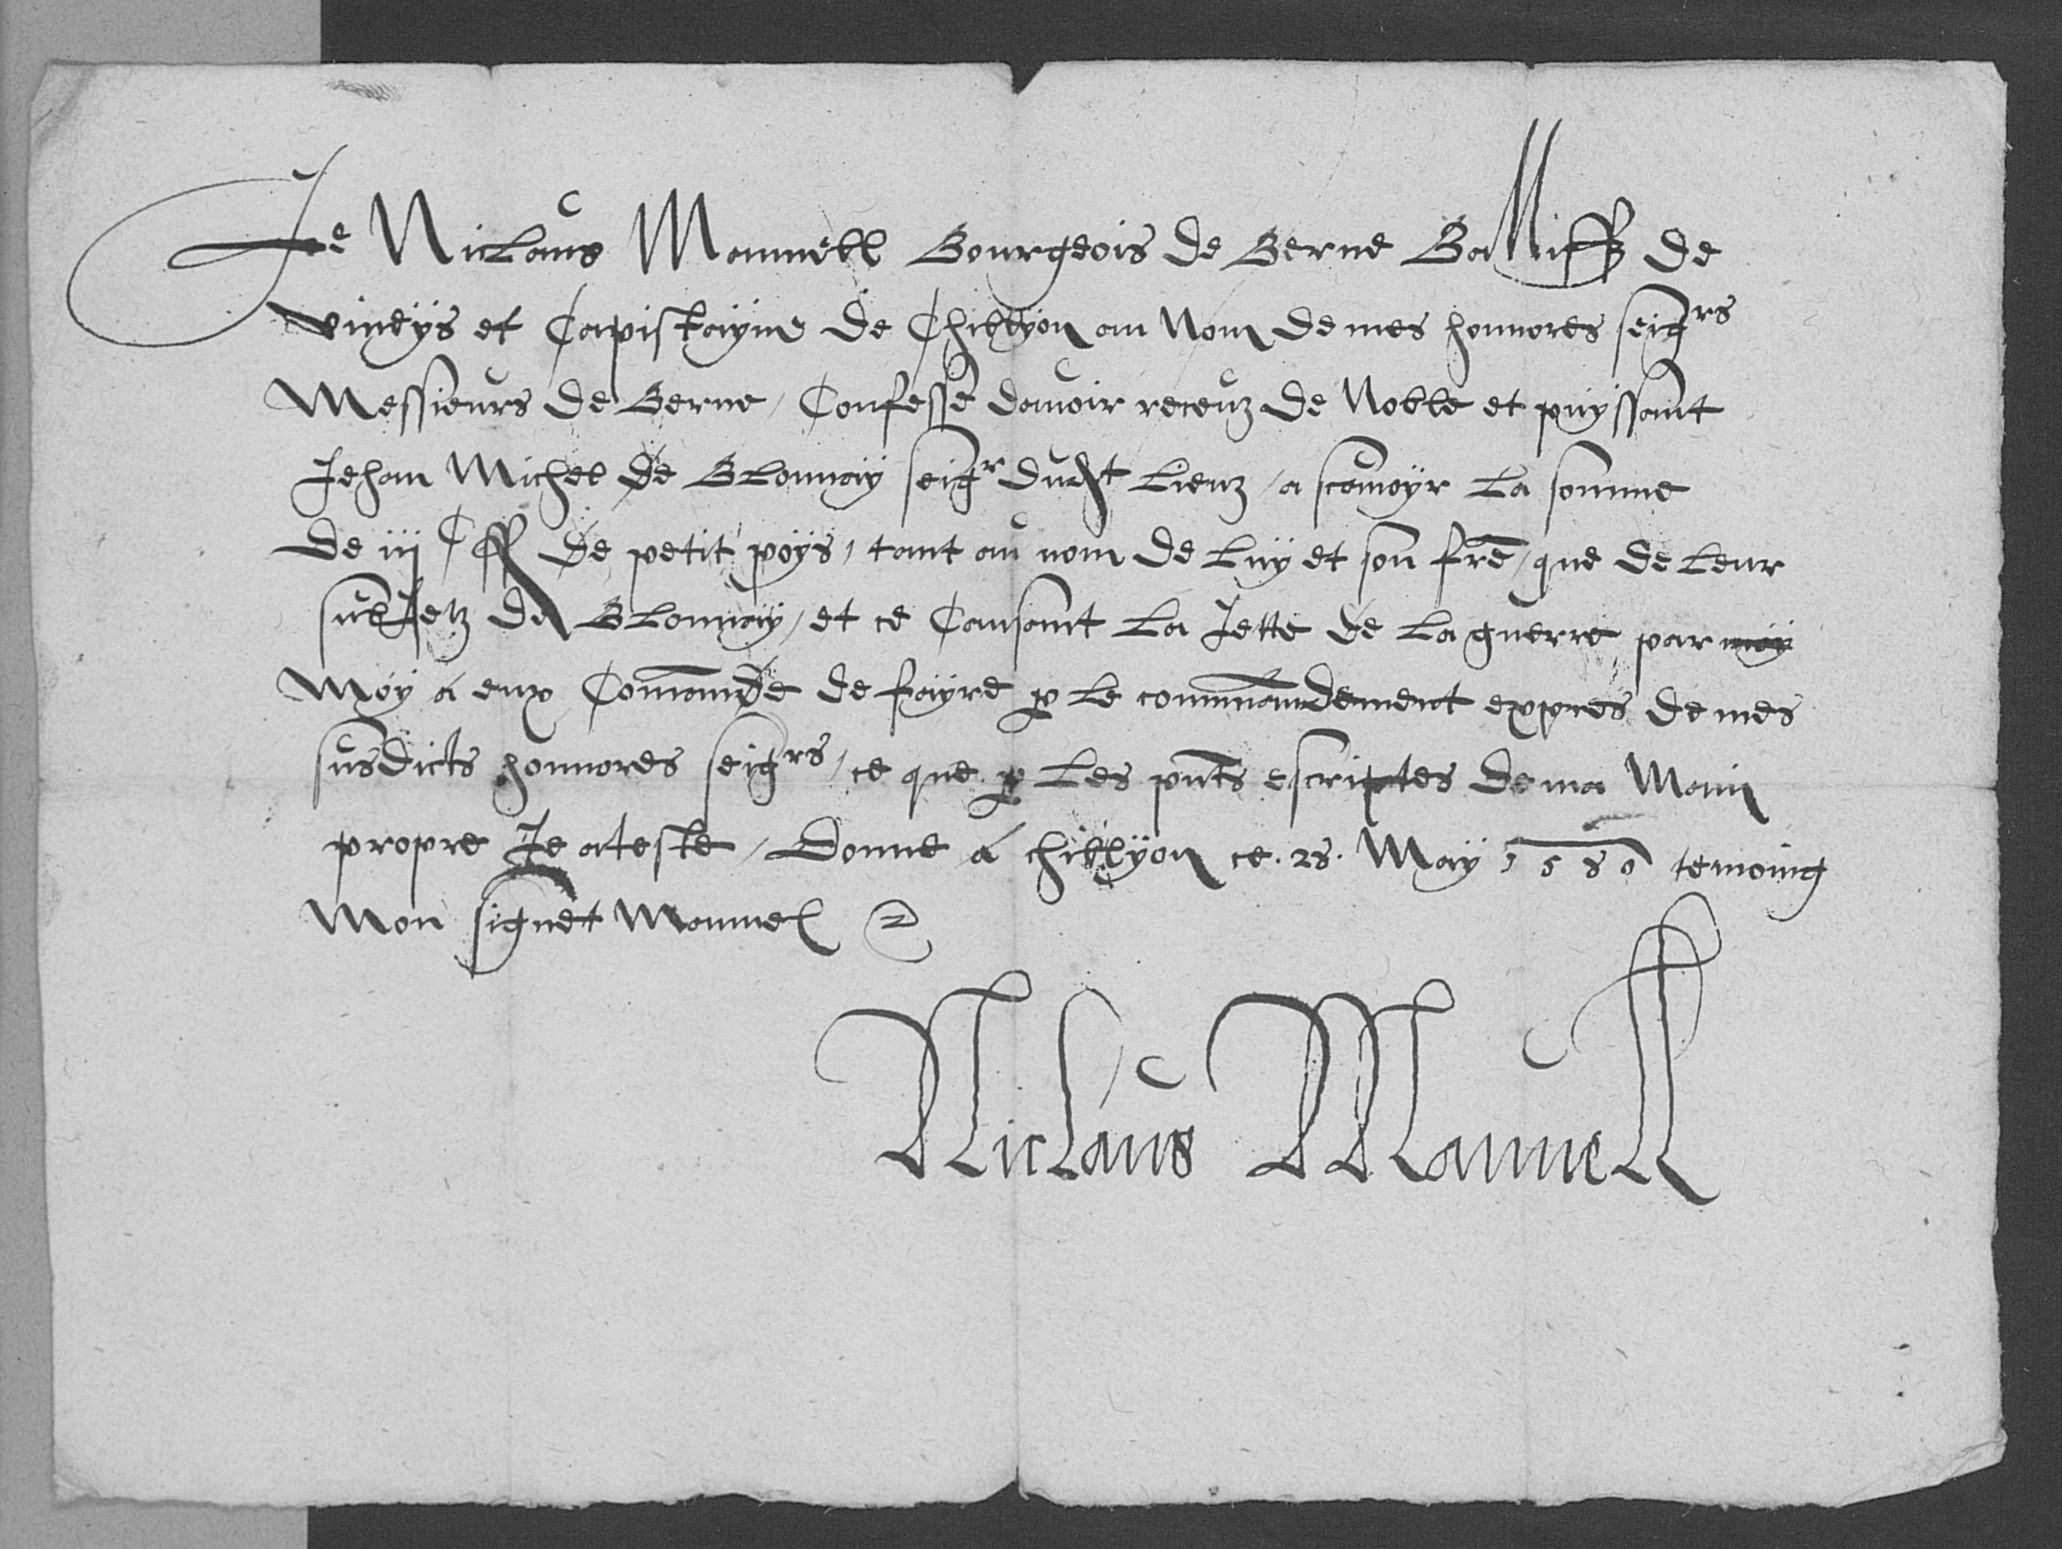 Je Niclaus Manuell Bourgeois de Berne Balliffz de
viveys et Capistayne de Chillyon au Nom de mes honnores seigrs
Messieurs de Berne / Confesse davoir receuz de Noble et puyssant
Jehan Michel de Blonnay seigr dudt Lieuz / a scavoyr La somme
de iij C ff de petit poys / tant au nom de Luy et son fre / que de Leur
subJetz de Blonnay / et ce Causant La Jette de La guerre par moy
Moy á eux Comande de fayre p Le commandement expres de mes
susdicts honnores seigrs / ce que p Les pnts escriptes de ma Main
propre Je ateste / Donne á chillyon ce . 28 . May 1580 temoing
Mon signet Manuel
Niclaus Manuell